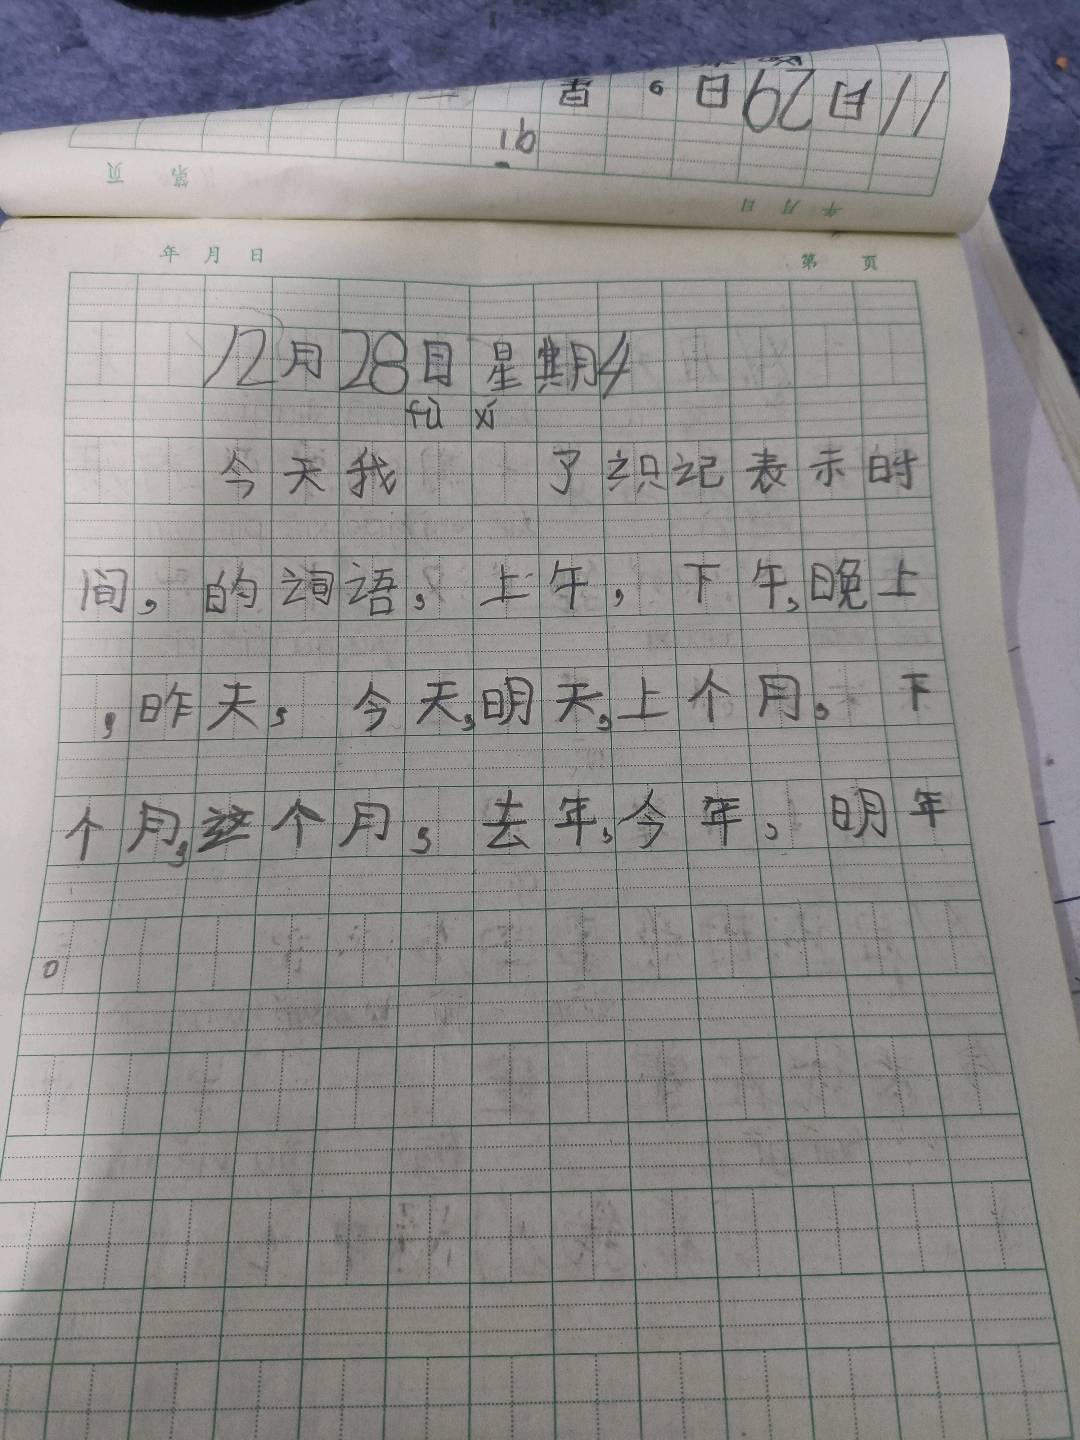 11月29日。
qī
第 页
年 月 日
年 月 日
第 页
12月28日 星期4
fù xí
今天我 了识记表示时
间，的词语，上午，下午，晚上
，昨天，今天，明天，上个月。下
个月，这个月，去年，今年，明年
。